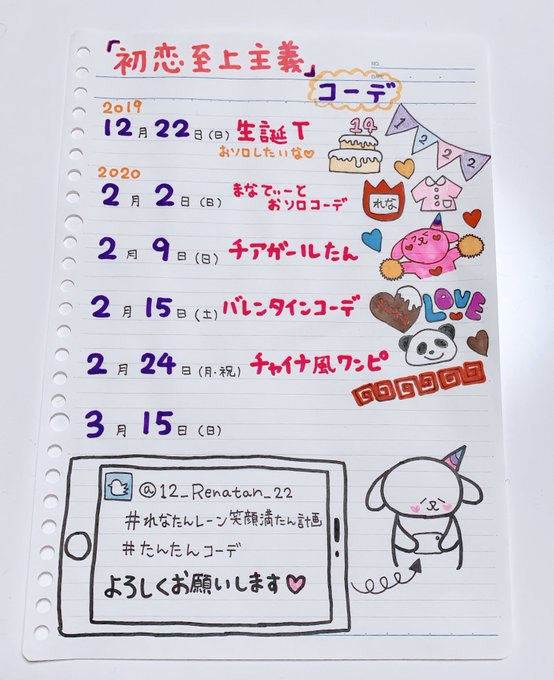 「初恋至上主義」
NO.
DATE
コーデ
2019
12月22日(日) 生誕T
おソロしたいな♡
14
1222
2020
2月2日(日) まなてぃーと
おソロコーデ
れな
2月9日(日) チアガールたん
2月15日(土) バレンタインコーデ
LOVE
2月24日(月・祝) チャイナ風ワンピ
3月15日(日)
@12_Renatan_22
#れなたんレーン笑顔満たん計画
#たんたんコーデ
よろしくお願いします♡